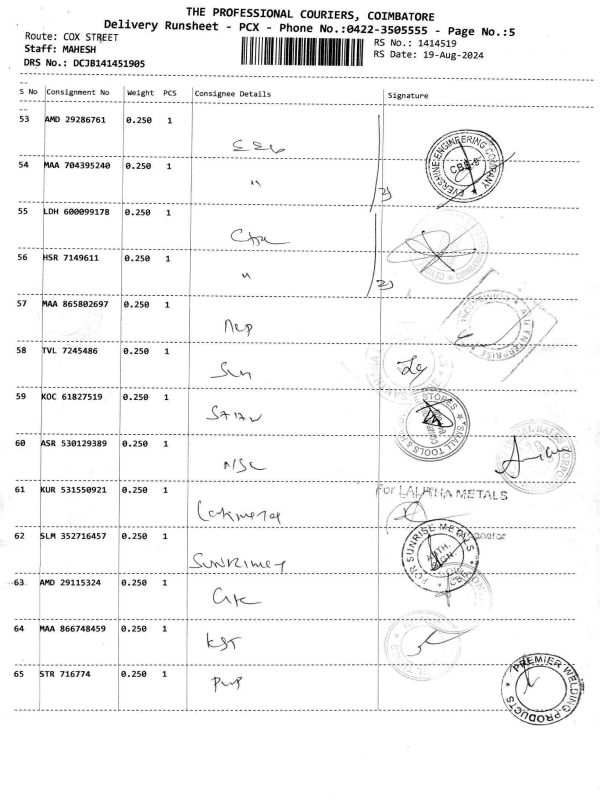 THE PROFESSIONAL COURIERS, COIMBATORE
Delivery Runsheet - PCX - Phone No.:0422-3505555 - Page No.:5
Route: COX STREET
RS No.: 1414519
Staff: MAHESH
RS Date: 19-Aug-2024
DRS No.: DCJB141451905
S No Consignment No Weight PCS Consignee Details Signature
53 AMD 29286761 0.250 1
EVERSHINE ENGINEERING COMPANY
54 MAA 704395240 0.250 1 "
55 LDH 600099178 0.250 1
56 HSR 7149611 0.250 1 "
57 MAA 865802697 0.250 1
ENTERPRISE
58 TVL 7245486 0.250 1
59 KOC 61827519 0.250 1
STORES * SMALL TOOLS &
60 ASR 530129389 0.250 1 NSC
61 KUR 531550921 0.250 1
For LALITHA METALS
62 SLM 352716457 0.250 1
* FOR SUNRISE METALS *
AUTH. SIGN
63 AMD 29115324 0.250 1
64 MAA 866748459 0.250 1 KST
65 STR 716774 0.250 1 PWP
* PREMIER WELDING PRODUCTS